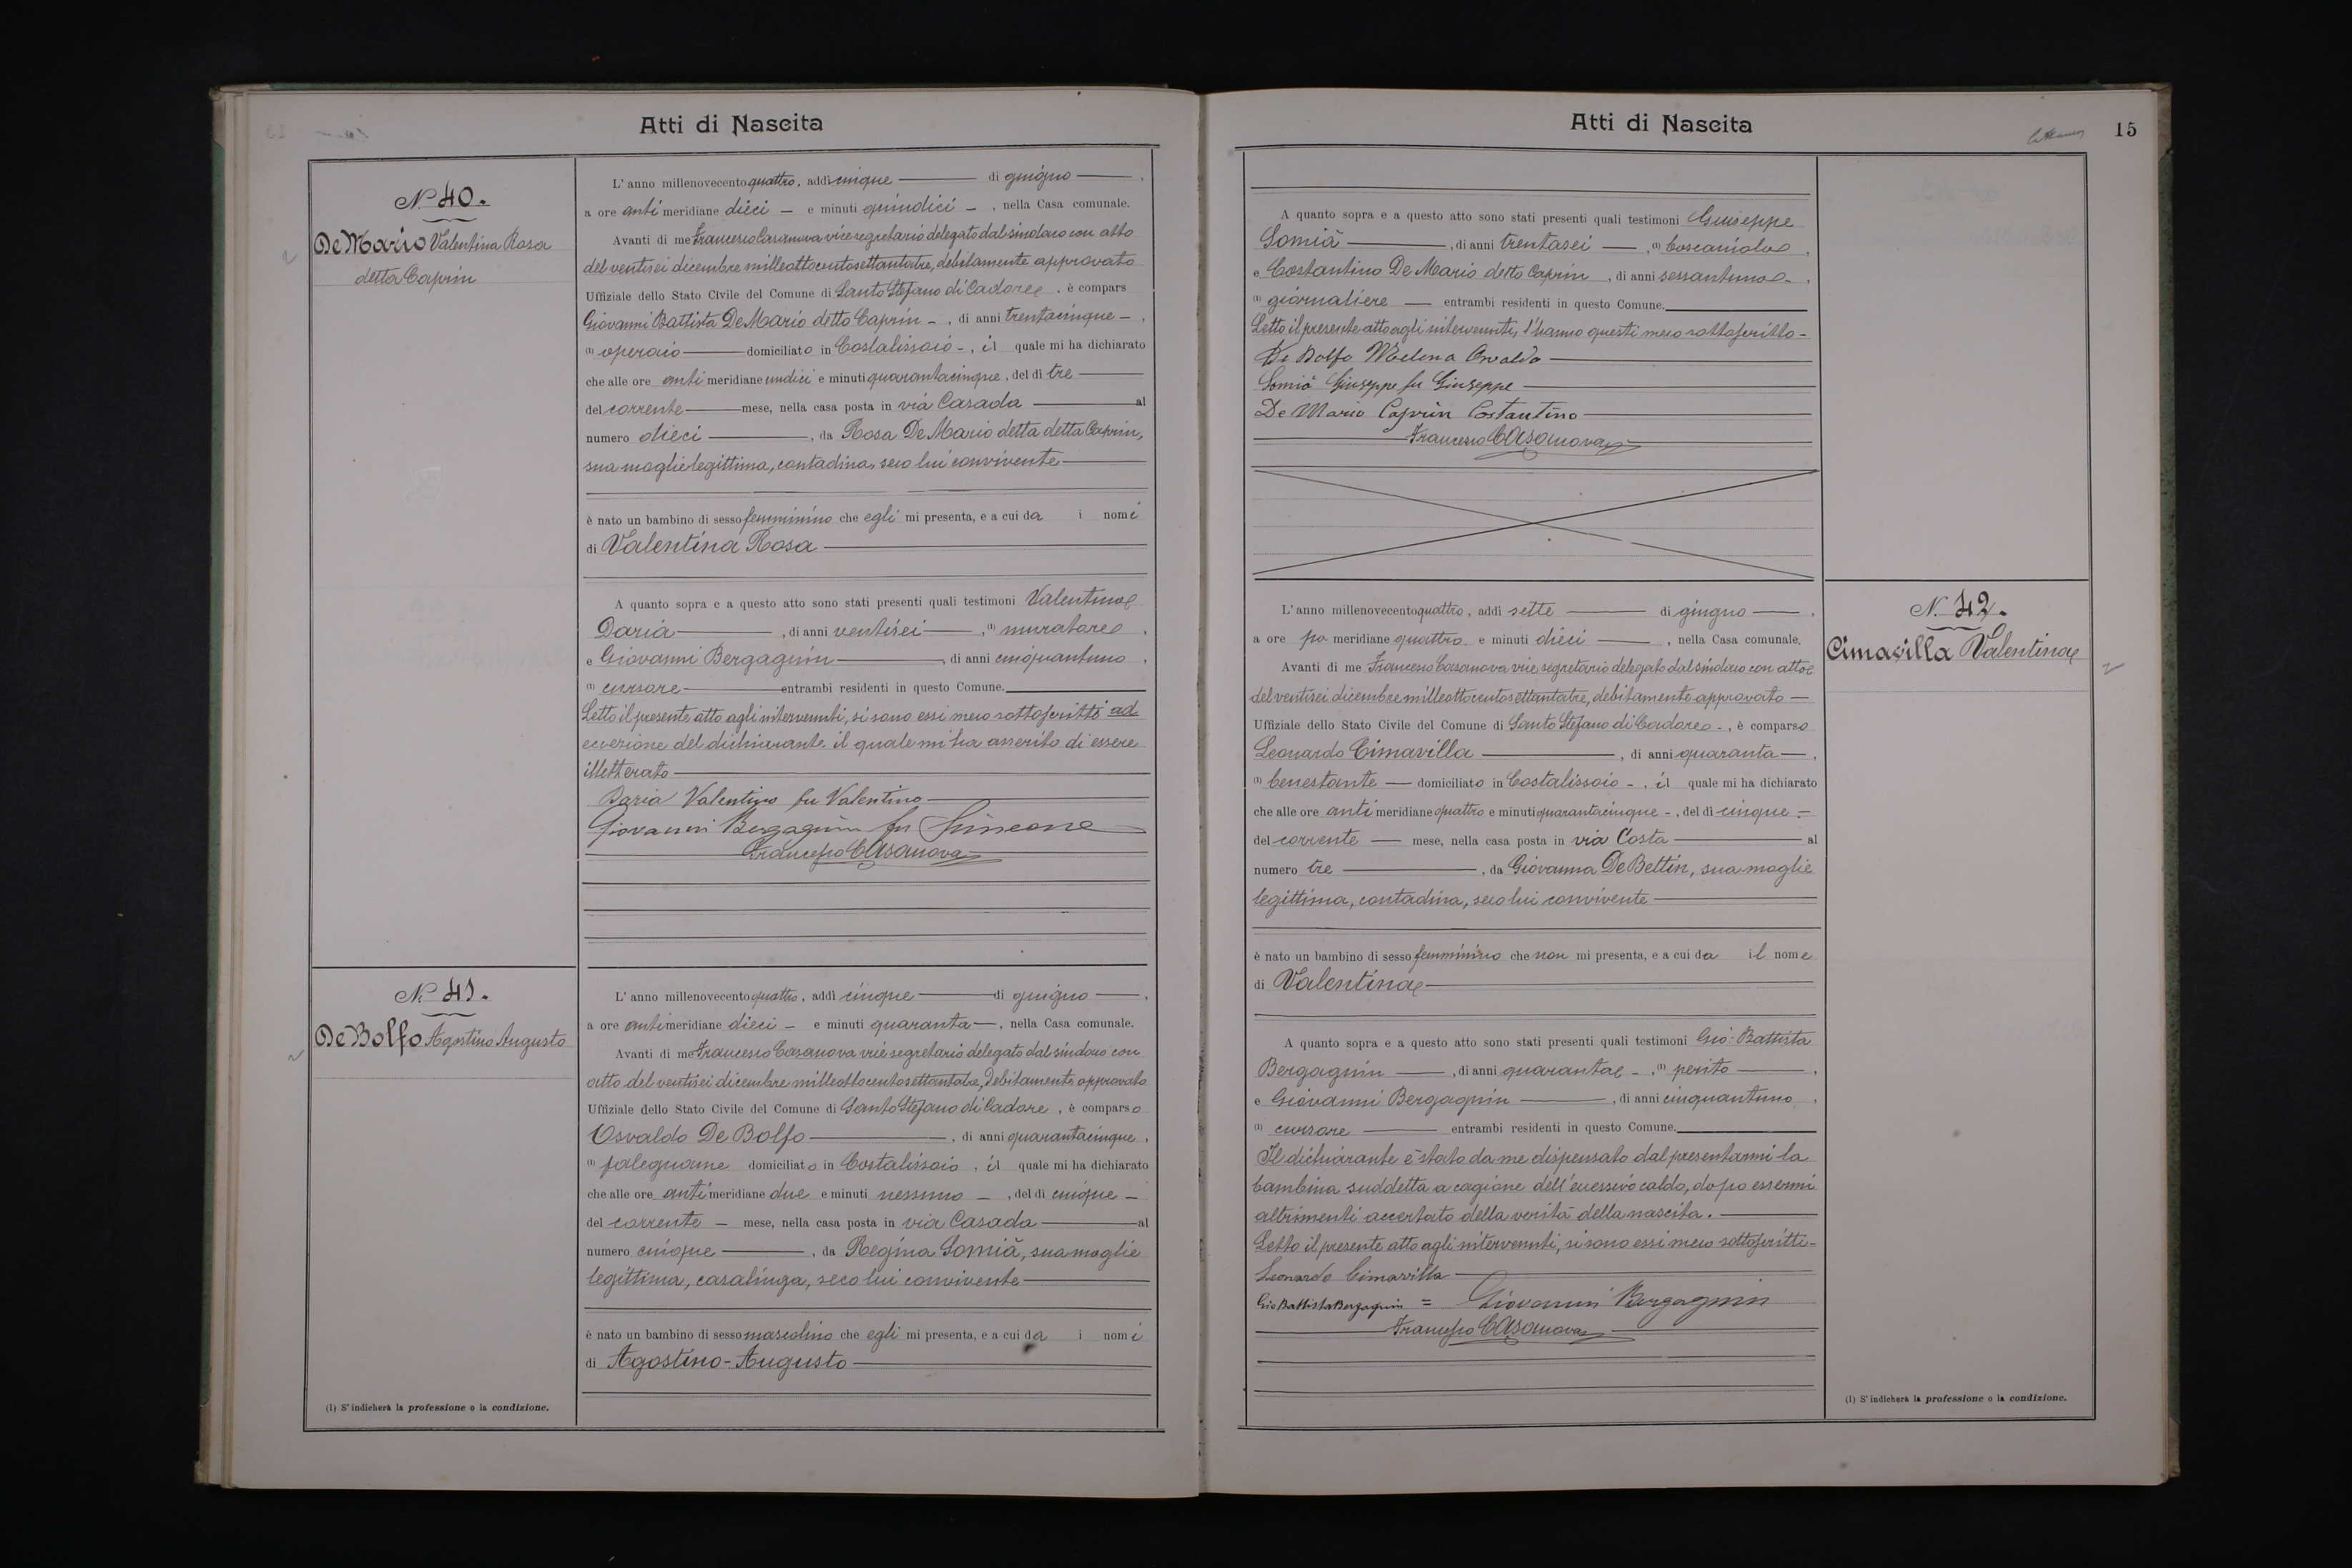 Atti di Nascita
N. 40.
De Mario Valentina Rosa
detta Caprin
L'anno millenovecentoquattro, addì cinque di giugno,
a ore antimeridiane dieci e minuti quindici, nella Casa comunale.
Avanti di me Francesco Casanova vice segretario delegato dal sindaco con atto
del ventisei dicembre milleottocentosettantatre, debitamente approvato
Uffiziale dello Stato Civile del Comune di Santo Stefano di Cadore, è compars
Giovanni Battista De Mario detto Caprin, di anni trentacinque,
(1) operaio domiciliato in Costalissoio, il quale mi ha dichiarato
che alle ore antimeridiane undici e minuti quarantacinque, del dì tre
del corrente mese, nella casa posta in via Casada al
numero dieci, da Rosa De Mario detta detta Caprin,
sua moglie legittima, contadina, seco lui convivente
è nato un bambino di sesso femminino che egli mi presenta, e a cui da i nomi
di Valentina Rosa
A quanto sopra e a questo atto sono stati presenti quali testimoni Valentino
Daria, di anni ventisei, (1) muratore,
e Giovanni Bergagnin, di anni cinquantuno,
(1) cursore entrambi residenti in questo Comune.
Letto il presente atto agli intervenuti, si sono essi meco sottoscritti ad
eccezione del dichiarante il quale mi ha asserito di essere
illetterato
Daria Valentino fu Valentino
Giovanni Bergagnin fu Simeone
Francesco Casanova
N. 41.
De Bolfo Agostino Augusto
L'anno millenovecentoquattro, addì cinque di giugno,
a ore antimeridiane dieci e minuti quaranta, nella Casa comunale.
Avanti di me Francesco Casanova vice segretario delegato dal sindaco con
atto del ventisei dicembre milleottocentosettantatre, debitamente approvato
Uffiziale dello Stato Civile del Comune di Santo Stefano di Cadore, è comparso
Osvaldo De Bolfo, di anni quarantacinque,
(1) falegname domiciliato in Costalissoio, il quale mi ha dichiarato
che alle ore antimeridiane due e minuti nessuno, del dì cinque
del corrente mese, nella casa posta in via Casada al
numero cinque, da Regina Somià, sua moglie
legittima, casalinga, seco lui convivente
è nato un bambino di sesso mascolino che egli mi presenta, e a cui da i nomi
di Agostino-Augusto
(1) S'indicherà la professione o la condizione.
Atti di Nascita
15
A quanto sopra e a questo atto sono stati presenti quali testimoni Giuseppe
Somià, di anni trentasei, (1) boscaiolo,
e Costantino De Mario detto Caprin, di anni sessantuno,
(1) giornaliere entrambi residenti in questo Comune.
Letto il presente atto agli intervenuti, l'hanno questi meco sottoscritto
De Bolfo Melena Osvaldo
Somià Giuseppe fu Giuseppe
De Mario Caprin Costantino
Francesco Casanova
N. 42.
Cimavilla Valentina
L'anno millenovecentoquattro, addì sette di giugno,
a ore pomeridiane quattro e minuti dieci, nella Casa comunale.
Avanti di me Francesco Casanova vice segretario delegato dal sindaco con atto
del ventisei dicembre milleottocentosettantatre, debitamente approvato
Uffiziale dello Stato Civile del Comune di Santo Stefano di Cadore, è comparso
Leonardo Cimavilla, di anni quaranta,
(1) benestante domiciliato in Costalissoio, il quale mi ha dichiarato
che alle ore antimeridiane quattro e minuti quarantacinque, del dì cinque
del corrente mese, nella casa posta in via Costa al
numero tre, da Giovanna De Bettin, sua moglie
legittima, contadina, seco lui convivente
è nato un bambino di sesso femminino che non mi presenta, e a cui da il nome
di Valentina
A quanto sopra e a questo atto sono stati presenti quali testimoni Gio: Battista
Bergagnin, di anni quaranta, (1) perito,
e Giovanni Bergagnin, di anni cinquantuno,
(1) cursore entrambi residenti in questo Comune.
Il dichiarante è stato da me dispensato dal presentarmi la
bambina suddetta a cagione dell'eccessivo caldo, dopo essermi
altrimenti accertato della verità della nascita.
Letto il presente atto agli intervenuti, si sono essi meco sottoscritti
Leonardo Cimavilla
Gio Battista Bergagnin = Giovanni Bergagnin
Francesco Casanova
(1) S'indicherà la professione o la condizione.